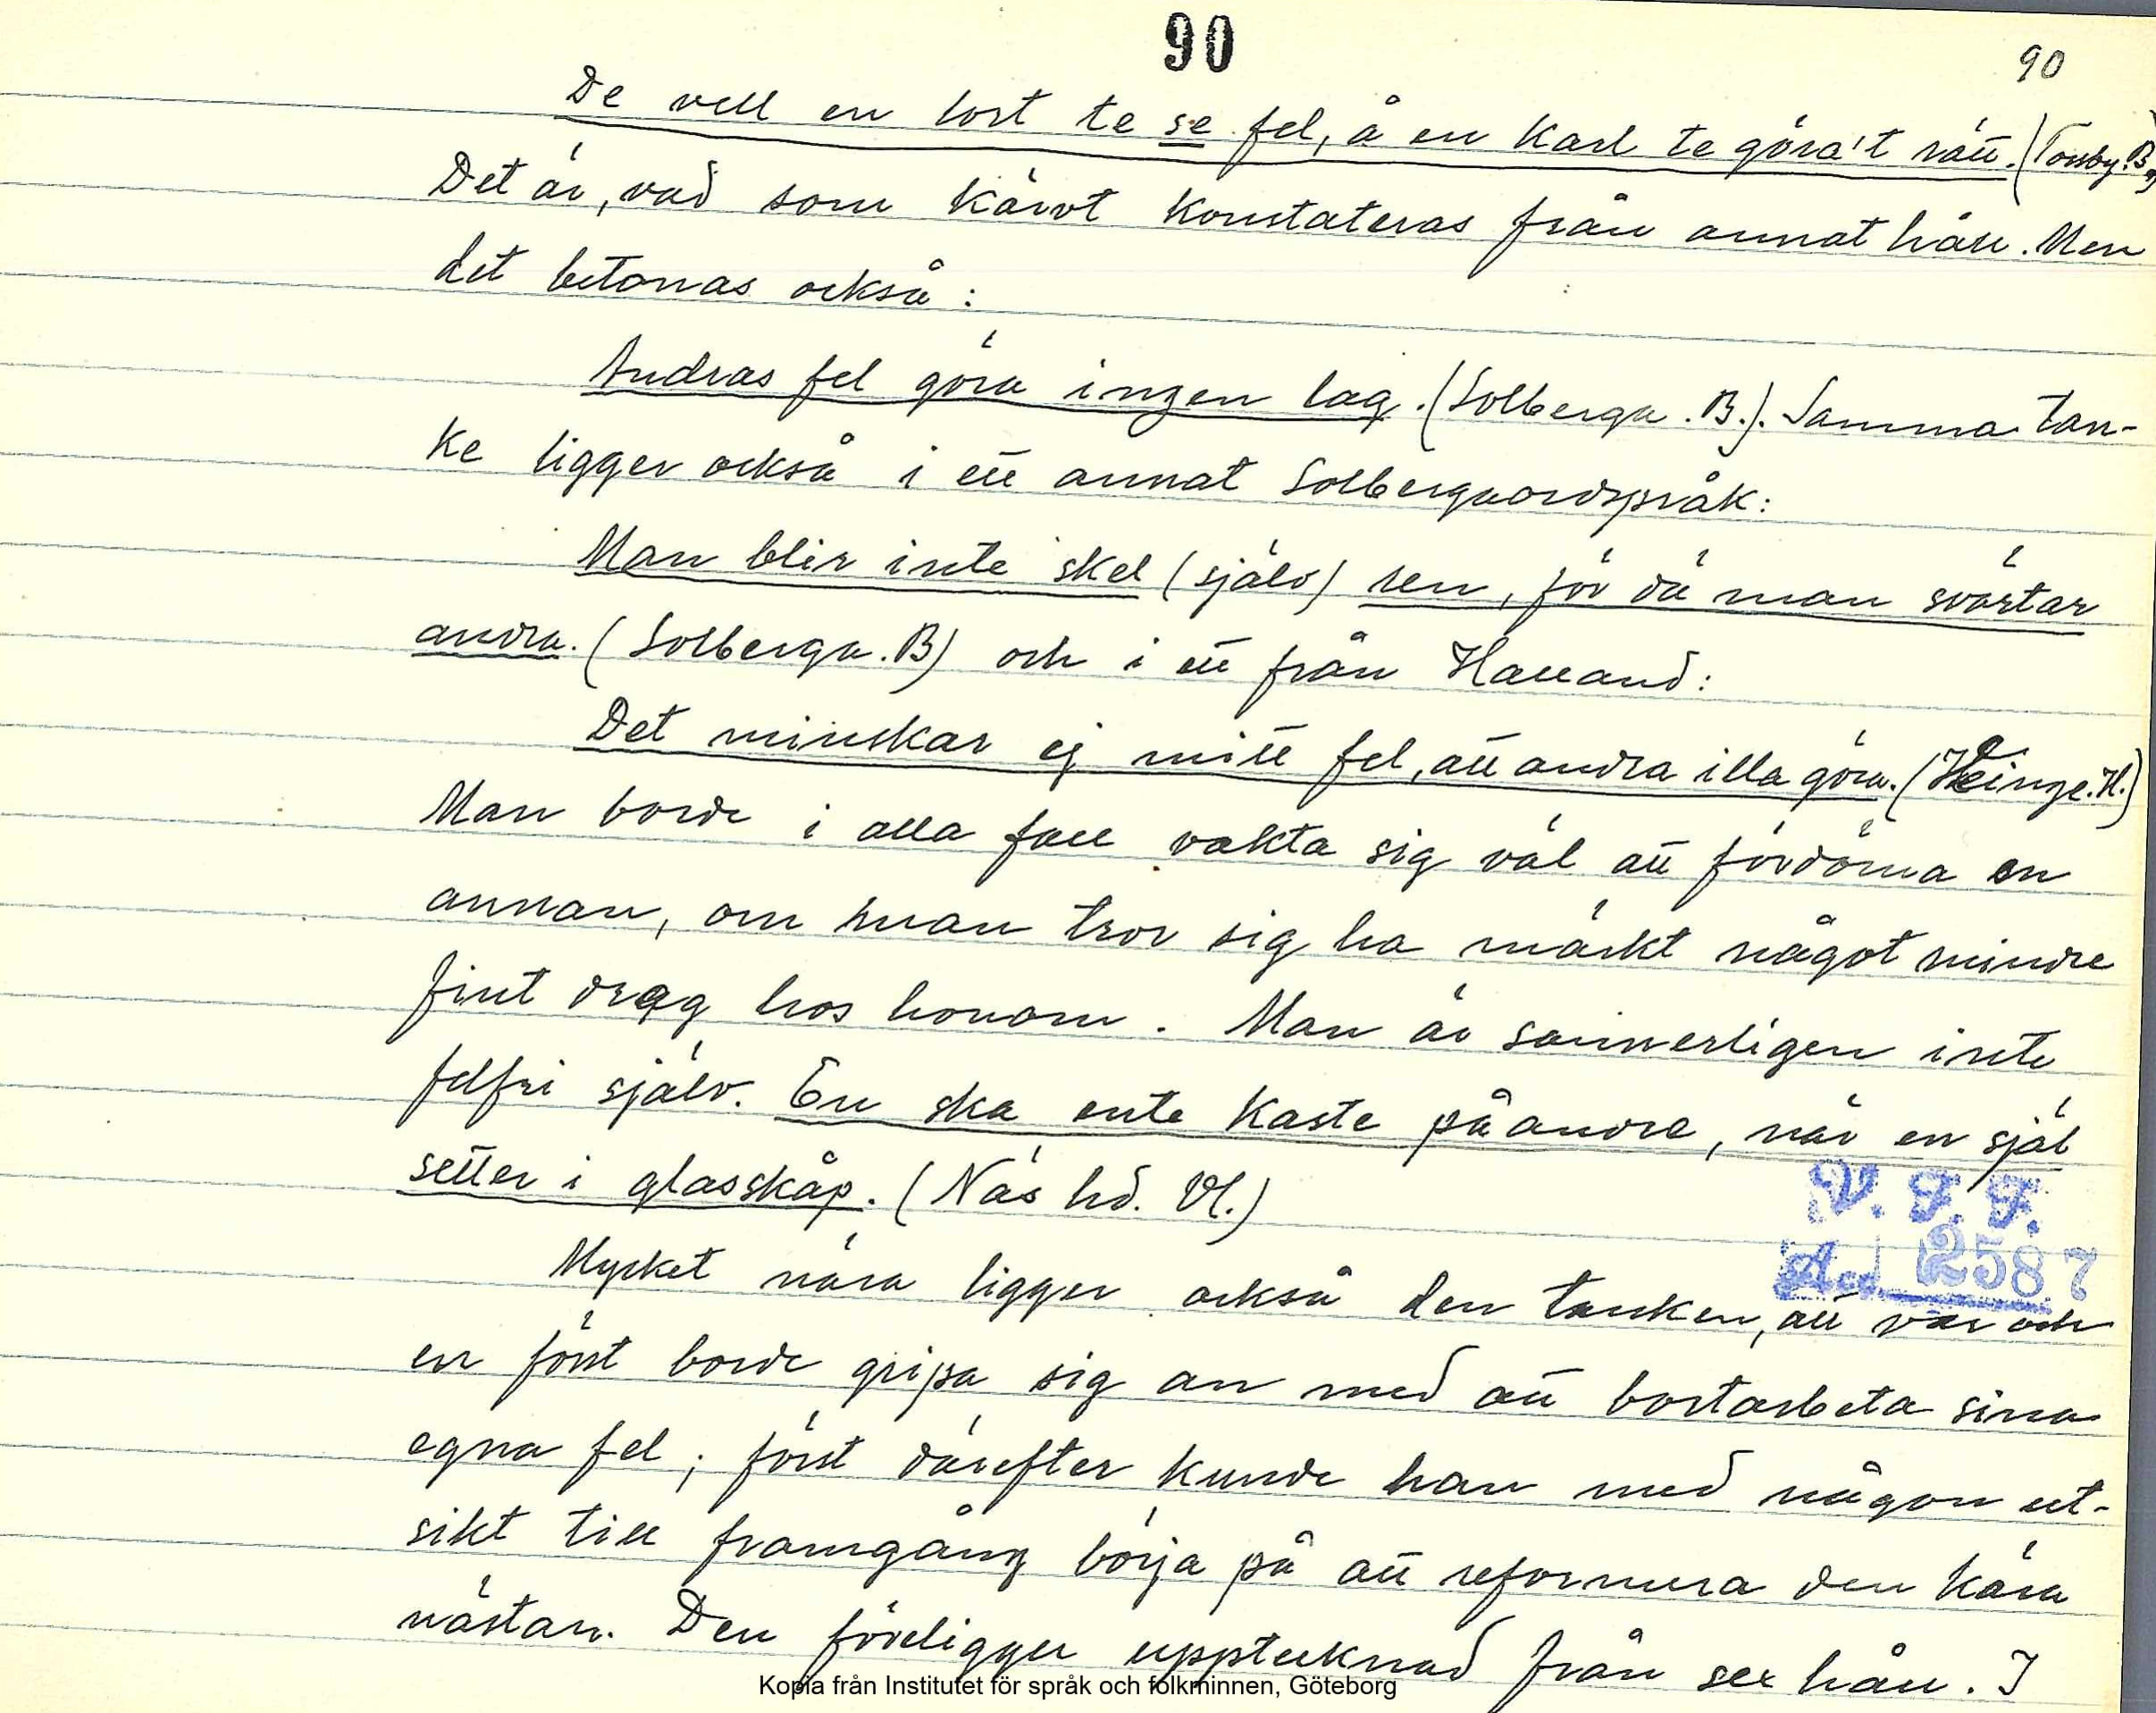 90
90
De vell en tort te se fel, å en karl te göra't rätt. (Torsby. B.)
Det är, vad som kärvt konstateras från annat håll. Men
det betonas också:
Andras fel göra ingen lag. (Solberga. B.). Samma tan-
ke ligger också i ett annat Solbergaordspråk:
Man blir inte skel (själv) ren, för då man svärtar
andra. (Solberga. B) och i ett från Halland:
Det minskar ej mitt fel, att andra illa göra. (Veinge. H.)
Man borde i alla fall vakta sig väl att fördöma en
annan, om man tror sig ha märkt något mindre
fint drag hos honom. Man är sannerligen inte
felfri själv. En ska ente kaste på andre, när en själ
setter i glasskåp. (Näs hd. Vl.)
V. F. F.
Acc 2587
Mycket nära ligger också den tanken, att var och
en först borde gripa sig an med att bortarbeta sina
egna fel; först därefter kunde han med någon ut-
sikt till framgång börja på att reformera den kära
nästan. Den föreligger upptecknad från sex håll. I
Kopia från Institutet för språk och folkminnen, Göteborg